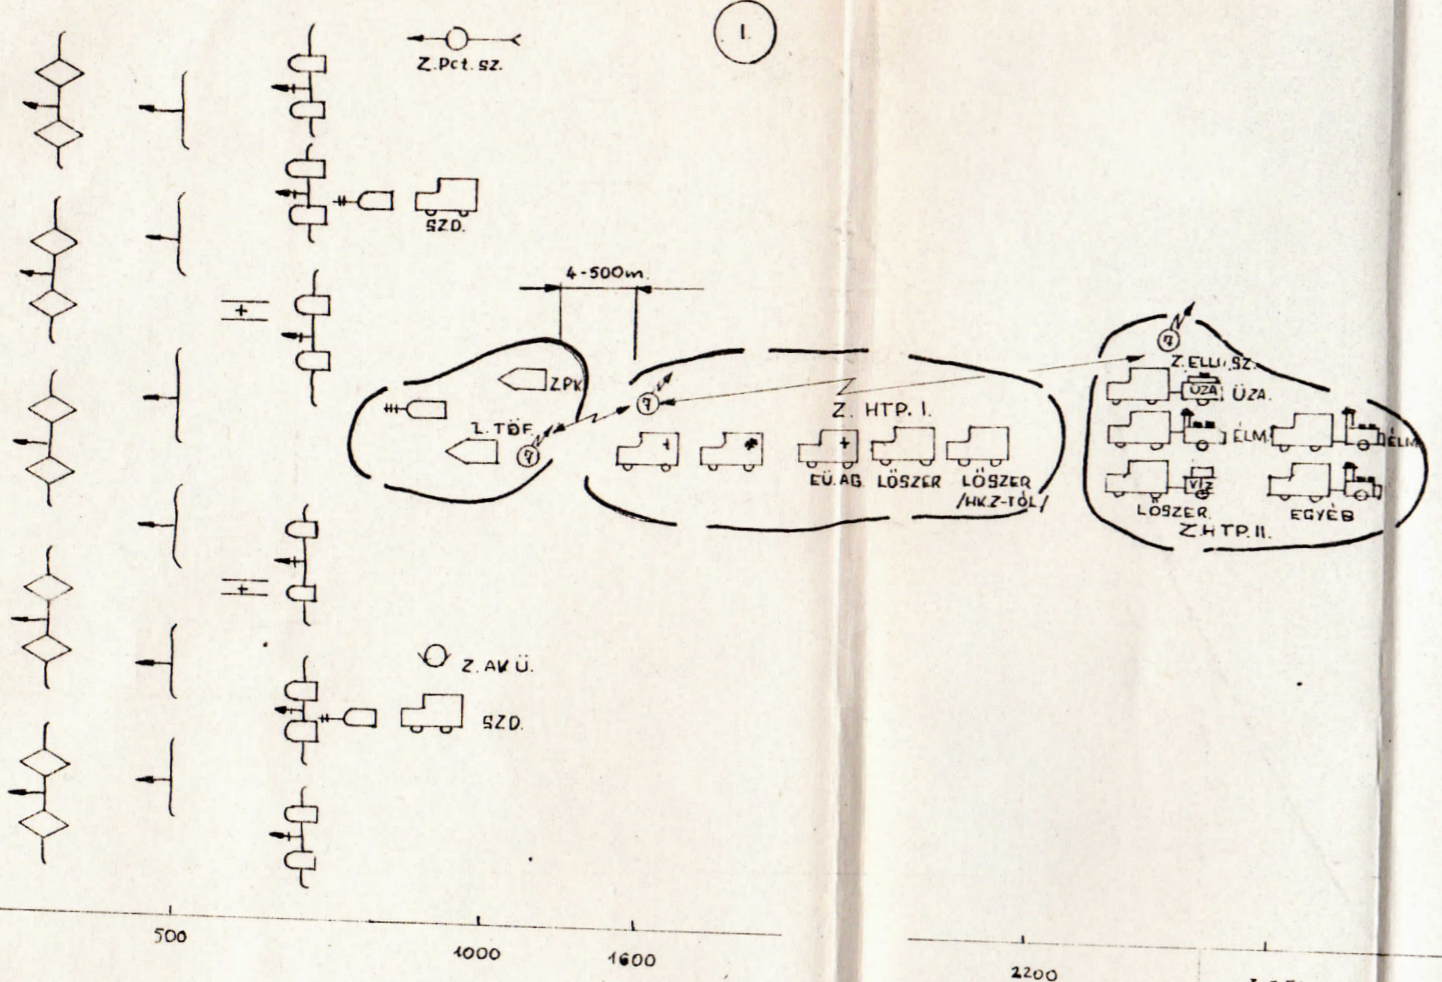 1.
Z.Pct.sz.
SZD.
4-500m.
Z.PK.
Z.TÖF.
7
7
Z. HTP. I.
EÜ.AG.
LŐSZER
LŐSZER
/HKZ-TÓL/
7
ÜZA
ÜZA.
ÉLM
ÉLM
VÍZ
LŐSZER.
EGYÉB
Z.HTP.II.
Z.AKÜ.
SZD.
500
1000
1600
2200